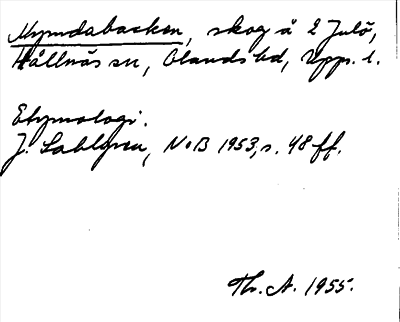 Mymdabacken, skog å 2 Julö,
Hållnäs sn, Olands hd, Upps. l.
Etymologi.
J. Sahlgren, NoB 1953, s. 48 ff.
Th. A. 1955.